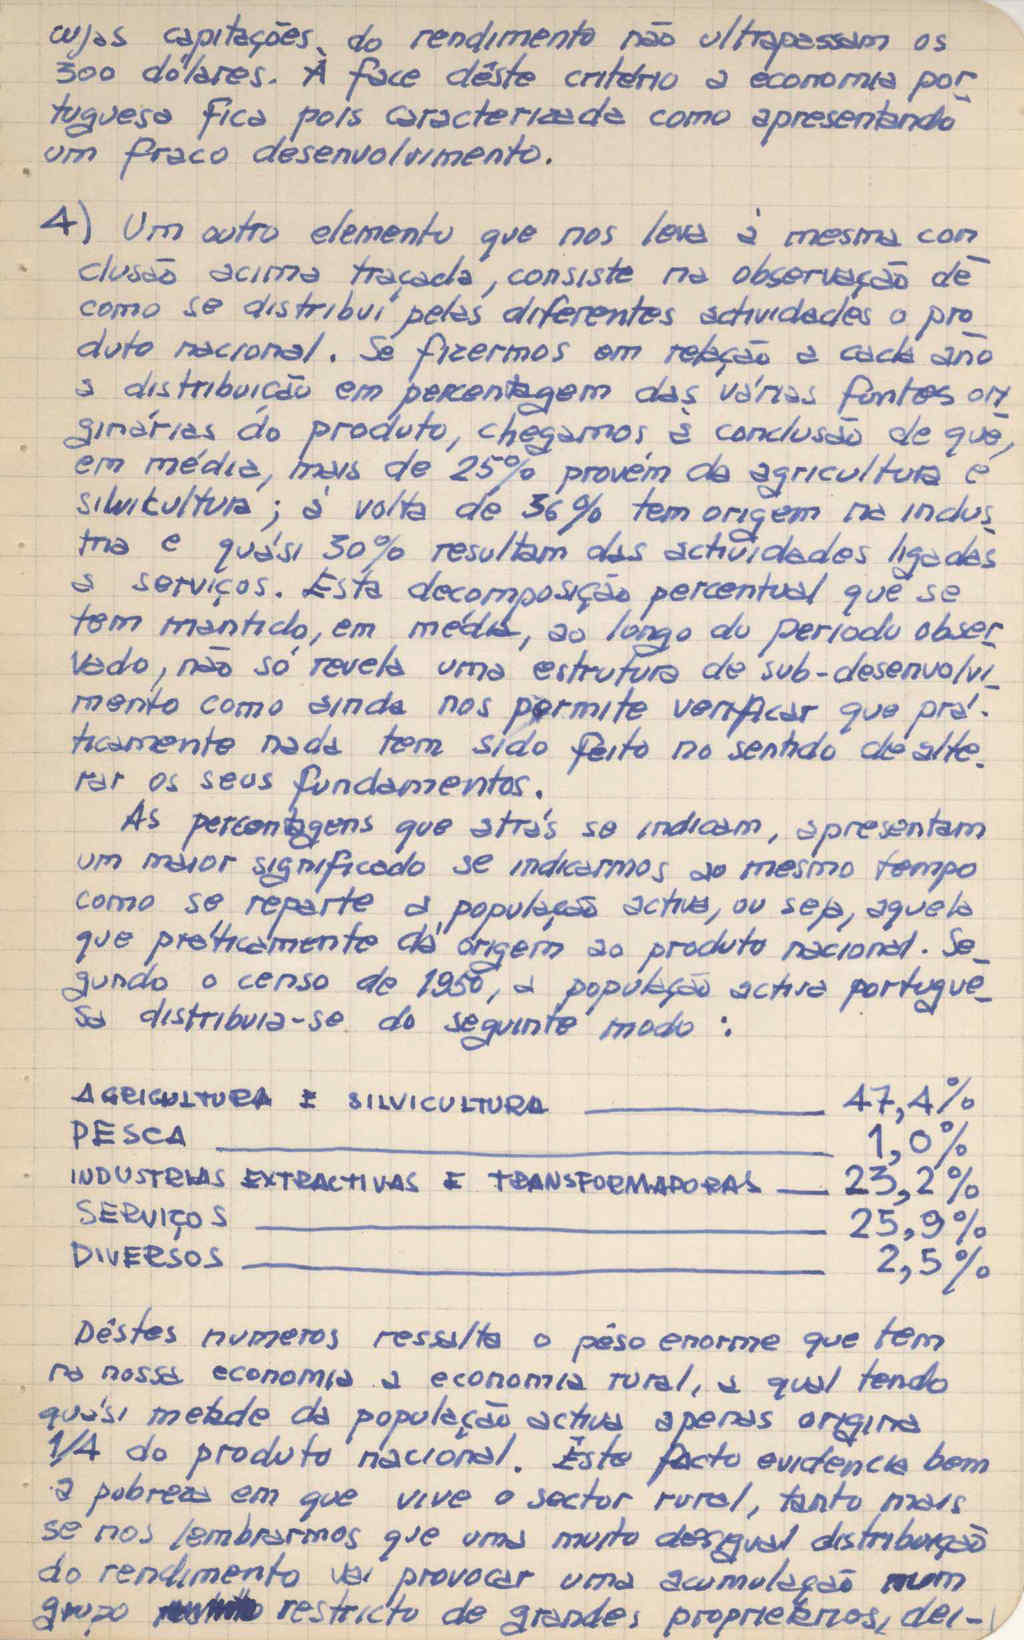 cujas capitações do rendimento não ultrapassam os
300 dólares. À face dêste critério a economia por_
tuguesa fica pois caracterizada como apresentando
um fraco desenvolvimento.
4) Um outro elemento que nos leva à mesma con_
clusão acima traçada, consiste na observação de
como se distribui pelas diferentes actividades o pro_
duto nacional. Se fizermos em relação a cada ano
a distribuição em percentagem das várias fontes ori_
ginárias do produto, chegamos à conclusão de que,
em média, mais de 25% provém da agricultura e
silvicultura; à volta de 36% tem origem na indus_
tria e quási 30% resultam das actividades ligadas
a serviços. Esta decomposição percentual que se
tem mantido, em média, ao longo do período obser_
vado, não só revela uma estrutura de sub-desenvolvi_
mento como ainda nos permite verificar que prá-
ticamente nada tem sido feito no sentido de alte_
rar os seus fundamentos.
As percentagens que atrás se indicam, apresentam
um maior significado se indicarmos ao mesmo tempo
como se reparte a população activa, ou seja, aquela
que práticamente dá origem ao produto nacional. Se_
gundo o censo de 1950, a população activa portugue_
sa distribuia-se do seguinte modo:
AGRICULTURA E SILVICULTURA ______ 47,4%
PESCA ______ 1,0%
INDUSTRIAS EXTRACTIVAS E TRANSFORMADORAS __ 23,2%
SERVIÇOS ______ 25,9%
DIVERSOS ______ 2,5%
Dêstes numeros ressalta o pêso enorme que tem
na nossa economia a economia rural, a qual tendo
quási metade da população activa apenas origina
1/4 do produto nacional. Êste facto evidencia bem
a pobreza em que vive o sector rural, tanto mais
se nos lembrarmos que uma muito desigual distribuição
do rendimento vai provocar uma acumulação num
grupo restricto de grandes proprietários, dei-